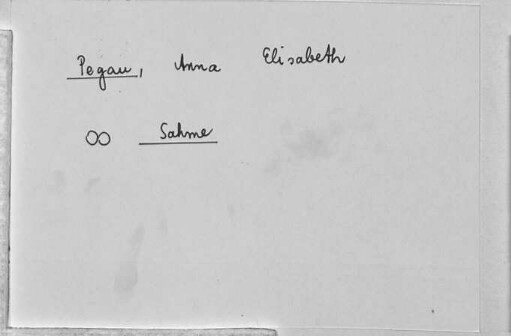 Pegau, Anna Elisabeth
∞ Sahme